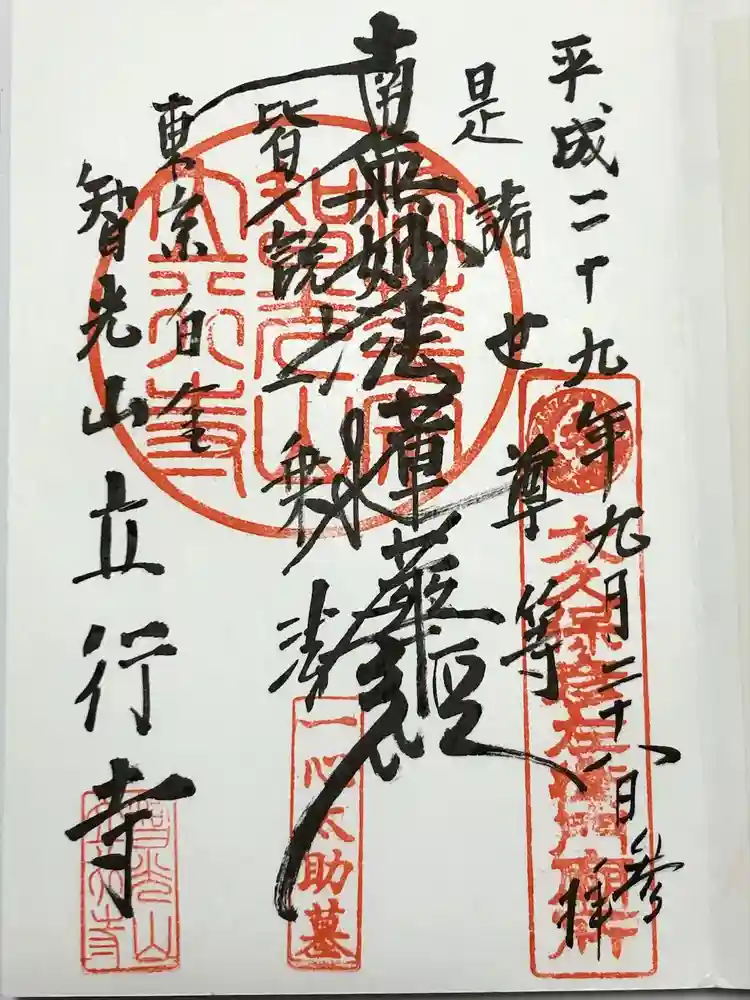 平成二十九年九月二十八日参拝
大久保彦左衛門廟所
是諸世尊等
南無妙法蓮華経
皆説一乗法
一心太助墓
法華宗
智光山
立行寺
東京白金
智光山立行寺
智光山
立行寺